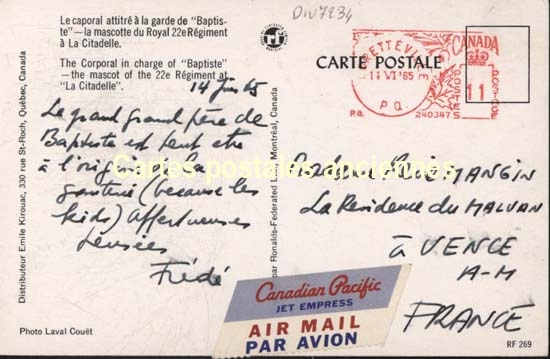 Le caporal attitré à la garde de "Baptis-
te" — la mascotte du Royal 22e Régiment
à La Citadelle.
The Corporal in charge of "Baptiste"
—the mascot of the 22e Régiment at
"La Citadelle".
DIV7234
CARTE POSTALE
CANADA
11 VI '65
P.Q.
POSTES
POSTAGE
11
P.B. 240347
14 Juin 65
Le grand grand père de
Baptiste est peut être
à l'origine
ganterie (because les
kids) Affectueuses
pensées
Frédé
Madame
MANGIN
La Residence du MALVAN
à VENCE
A-M
FRANCE
Cartes postales anciennes
Distributeur Emile Kirouac, 330 rue St-Roch, Québec, Canada
par Ronalds-Federated Ltée, Montréal, Canada
Canadian Pacific
JET EMPRESS
AIR MAIL
PAR AVION
Photo Laval Couët
RF 269